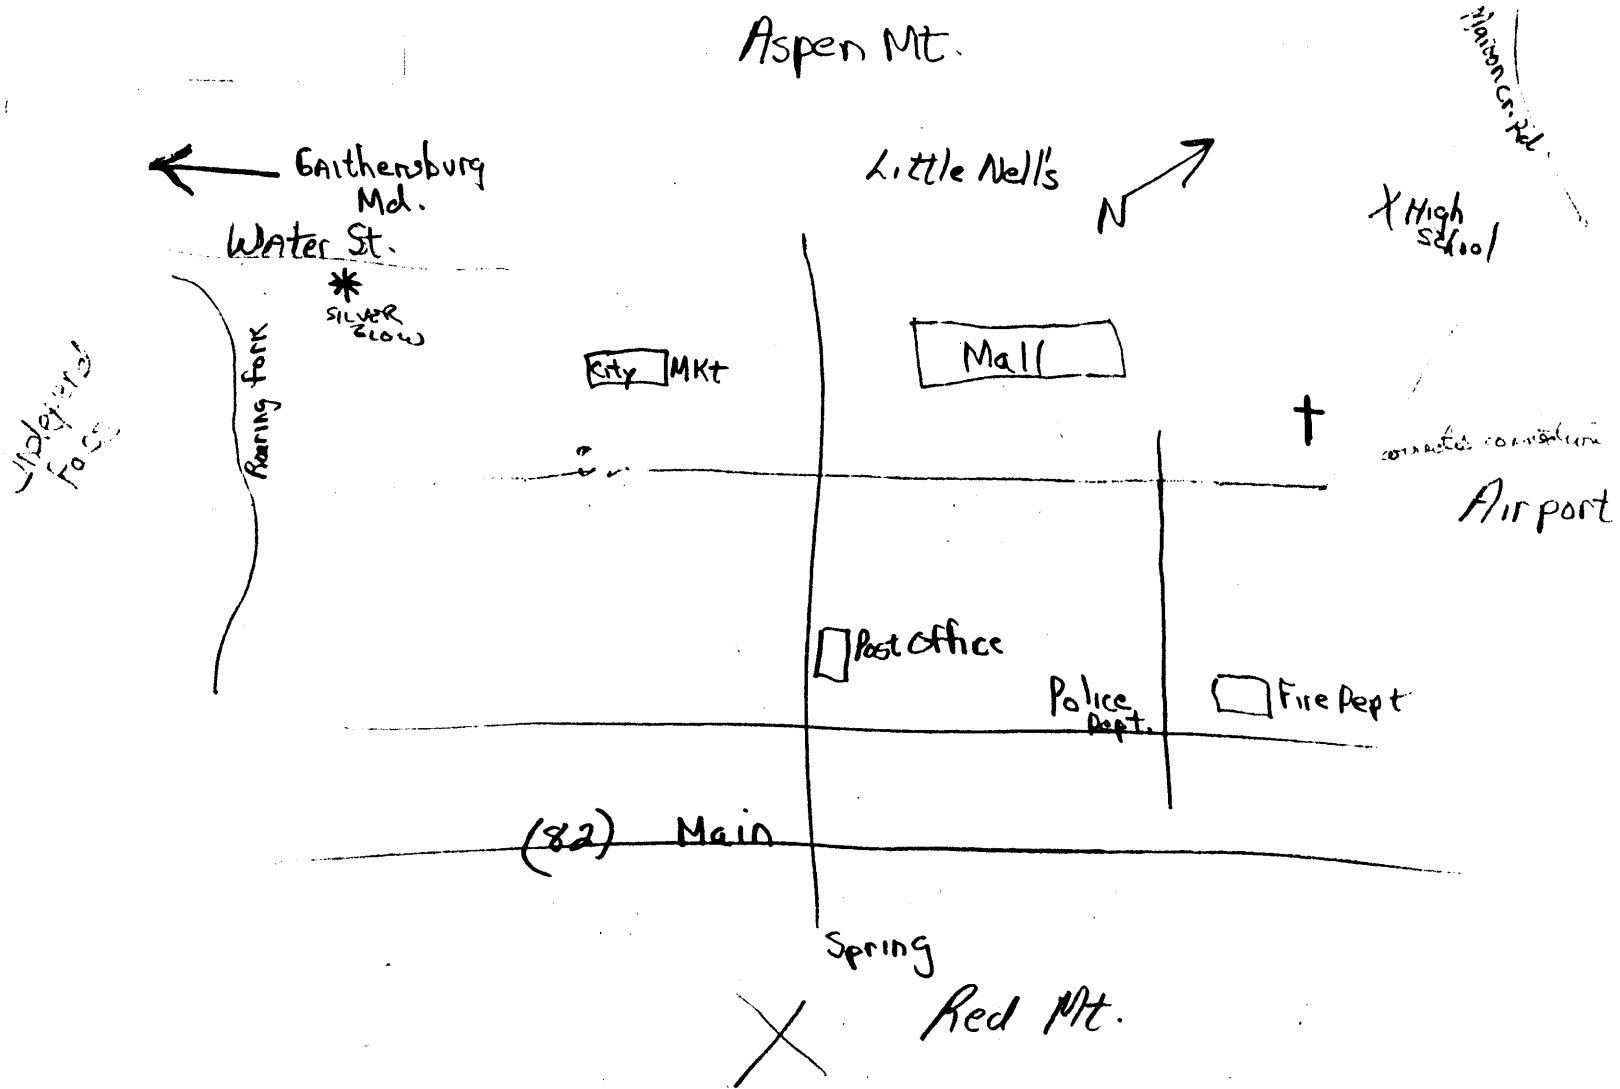 Aspen Mt.
Gaithersburg
Md.
Little Nell's
N
X High
School
Water St.
SILVER
GLOW
Roaring Fork
City MKt
Mall
Airport
Post Office
Police
Dept.
Fire Dept
(82) Main
Spring
Red Mt.
X